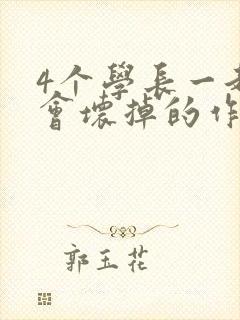 4个學長一
會壞掉的作
郭玉花